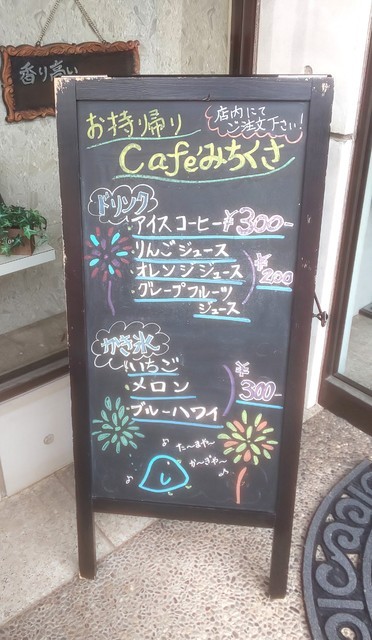 香り高い
お持ち帰り
店内にて
ご注文下さい!
Cafeみちくさ
ドリンク
・アイスコーヒー ¥300-
・りんごジュース
・オレンジジュース
・グレープフルーツ
ジュース
¥200
かき氷
・いちご
・メロン
・ブルーハワイ
¥300-
た~まや~
か~ぎや~